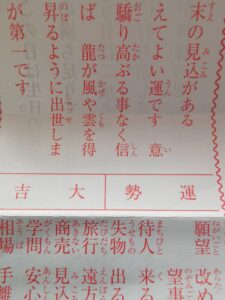 末の見込がある
えてよい運です 意
驕り高ぶる事なく信
ば 龍が風や雲を得
昇るように出世しま
が第一です
運勢
大吉
願望 改め
望事
待人 来る
失物 出る
旅行 遠方
商売 見込
学問 安心
相場 手離